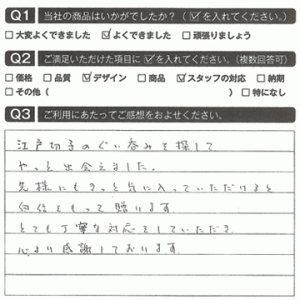 Q1 当社の商品はいかがでしたか?(☑を入れてください。)
☐大変よくできました ☑よくできました ☐頑張りましょう
Q2 ご満足いただけた項目に☑を入れてください。(複数回答可)
☐価格 ☐品質 ☑デザイン ☐商品 ☑スタッフの対応 ☐納期
☐その他( ) ☐特になし
Q3 ご利用にあたってご感想をおよせください。
江戸切子のぐい呑みを探して
やっと出会えました。
先様にもきっと気に入っていただけると
自信をもって贈ります
とても丁寧な対応をしていただき
心より感謝しております